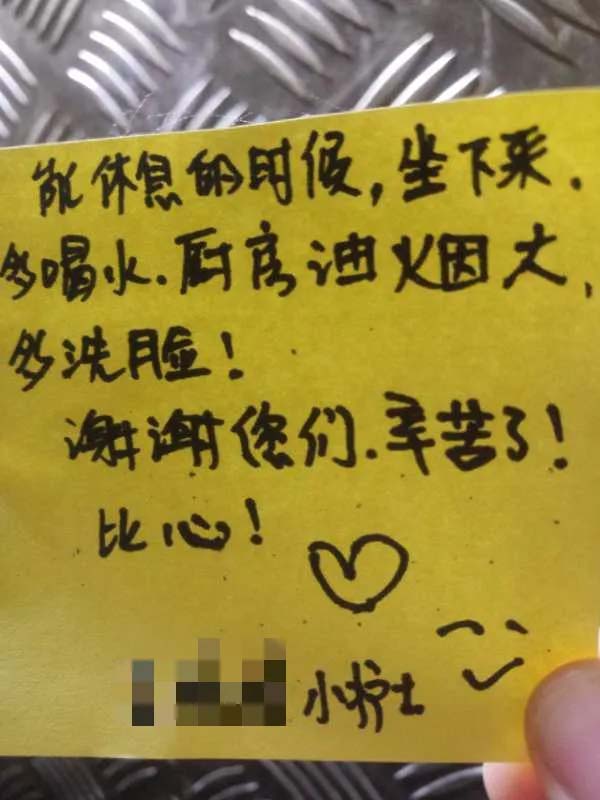 能休息的时候,坐下来.
多喝水.厨房油烟大,
多洗脸!
谢谢您们.辛苦了!
比心!
小护士